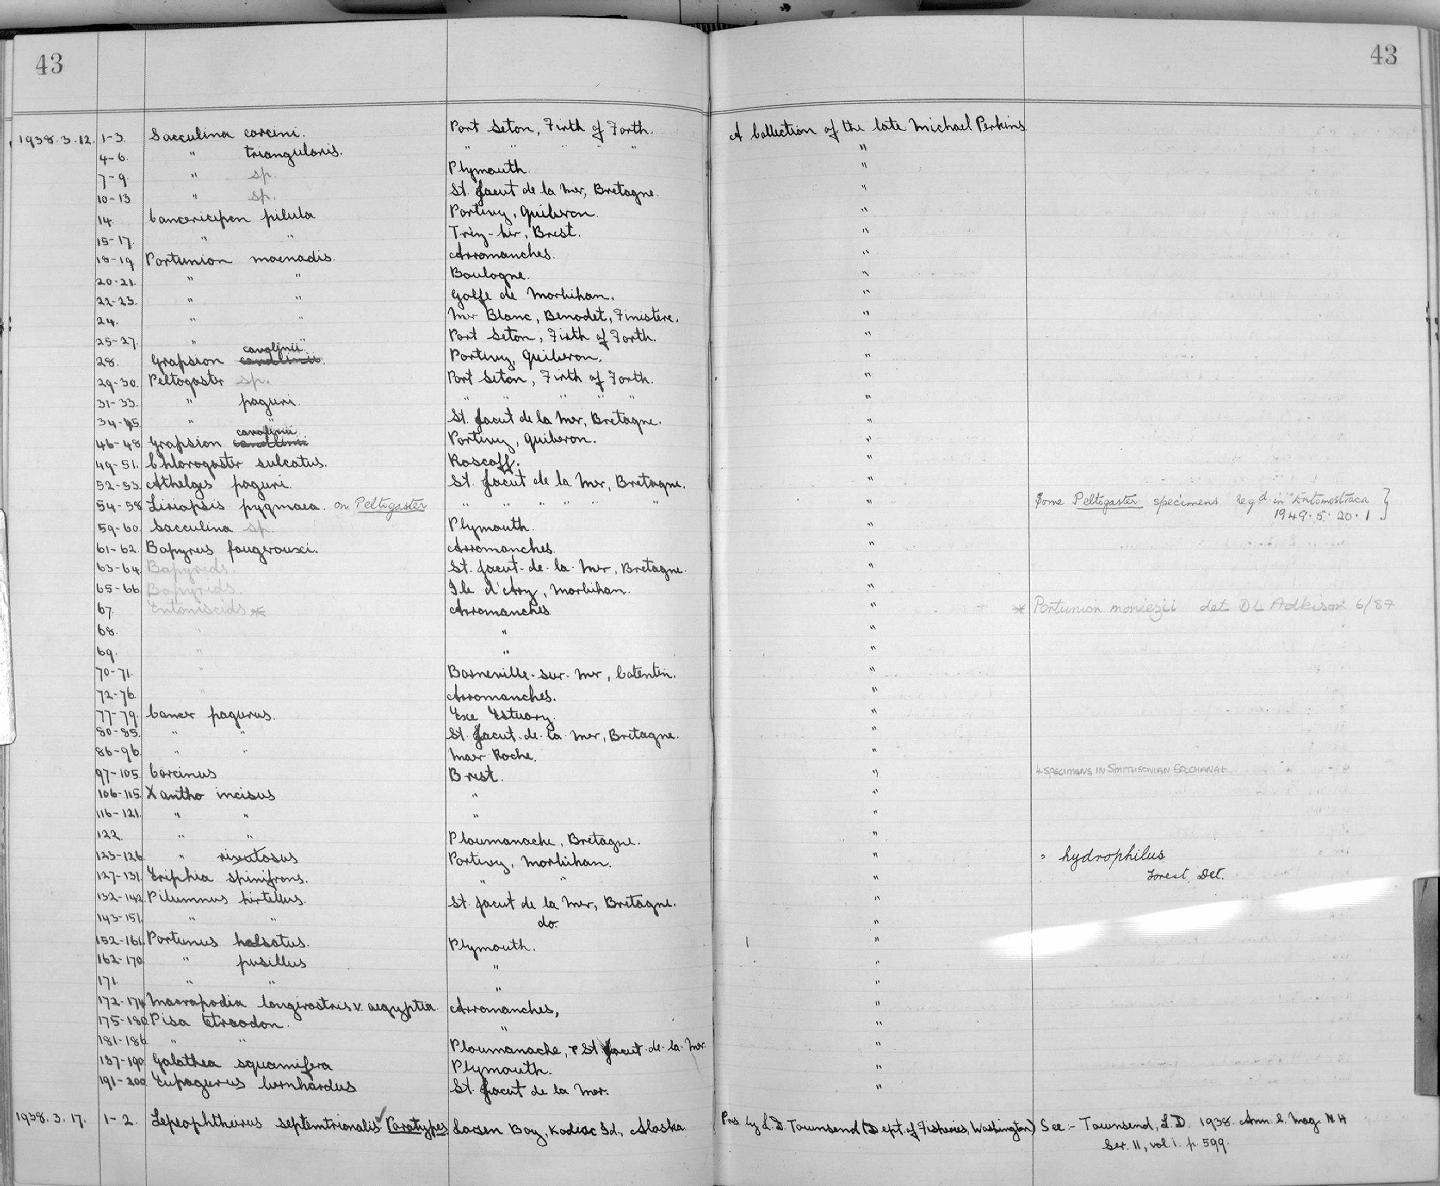 43 43
1938.3.12. 1-3. Sacculina carcini. Port Seton, Firth of Forth. A Collection of the late Michael Perkins
4-6. " triangularis. " " " " "
7-9. " sp. Plymouth. "
10-13 " sp. St. Jacut de la Mer, Bretagne. "
14. Cancricepon pilula Portivy, Quiberon. "
15-17. " " Trez-hir, Brest. "
18-19 Portunion maenadis. Arromanches. "
20-21. " " Boulogne. "
22-23. " " Golfe de Morbihan. "
24. " " Mer Blanc, Benodet, Finistere. "
25-27. " " Port Seton, Firth of Forth. "
28. Grapsion cavolinii. Portivy, Quiberon. "
29-30. Peltogaster sp. Port Seton, Firth of Forth. "
31-33. " paguri. " " " " "
34-45. " " St. Jacut de la Mer, Bretagne. "
46-48. Grapsion cavolinii Portivy, Quiberon. "
49-51. Chlorogaster sulcatus. Roscoff. "
52-53. Athelges paguri. St. Jacut de la Mer, Bretagne. "
54-58. Liriopsis pygmaea. on Peltogaster " " " " " " Some Peltogaster specimens regd. in Entomostraca
1949.5.20.1
59-60. Sacculina sp. Plymouth. "
61-62. Bopyrus fougerouxi. Arromanches. "
63-64. Bopyrids. St. Jacut-de-la-Mer, Bretagne. "
65-66. Bopyrids. Ile d'Arz, Morbihan. "
67. Entoniscids * Arromanches " * Portunion moniezii det D L Adkison 6/87
68. " " "
69. " " "
70-71. " Barneville-sur-Mer, Cotentin. "
72-76. " Arromanches. "
77-79. Cancer pagurus. Exe Estuary. "
80-85. " " St. Jacut-de-la-Mer, Bretagne. "
86-96. " " Mar Roche. "
97-105. Carcinus Brest. " 4 SPECIMENS IN SMITHSONIAN EXCHANGE
106-115. Xantho incisus " "
116-121. " " " "
122. " " Ploumanache, Bretagne. "
123-126. " Portivy, Morbihan. " = hydrophilus
Forest. Det.
127-131. Eriphia spinifrons. " " "
132-142. Pilumnus hirtellus. St. Jacut de la Mer, Bretagne. "
143-151. " " do. "
152-161. Portunus holsatus. Plymouth. "
162-170. " pusillus " "
171. " " " "
172-174. Macropodia longirostris v. aegyptia. Arromanches, "
175-180. Pisa tetraodon. " "
181-186. " " Ploumanache, & St Jacut-de-la-Mer "
187-190. Galathea squamifera Plymouth. "
191-200. Eupagurus bernhardus St. Jacut de la Mer. "
1938.3.17. 1-2. Lepeophtheirus septemtrionalis Paratypes Larsen Bay, Kodiac Id., Alaska Pres. by L.D. Townsend (Dept. of Fisheries, Washington) See:- Townsend, L.D. 1938. Ann. & Mag. N H
Ser. 11, vol i. p. 599.